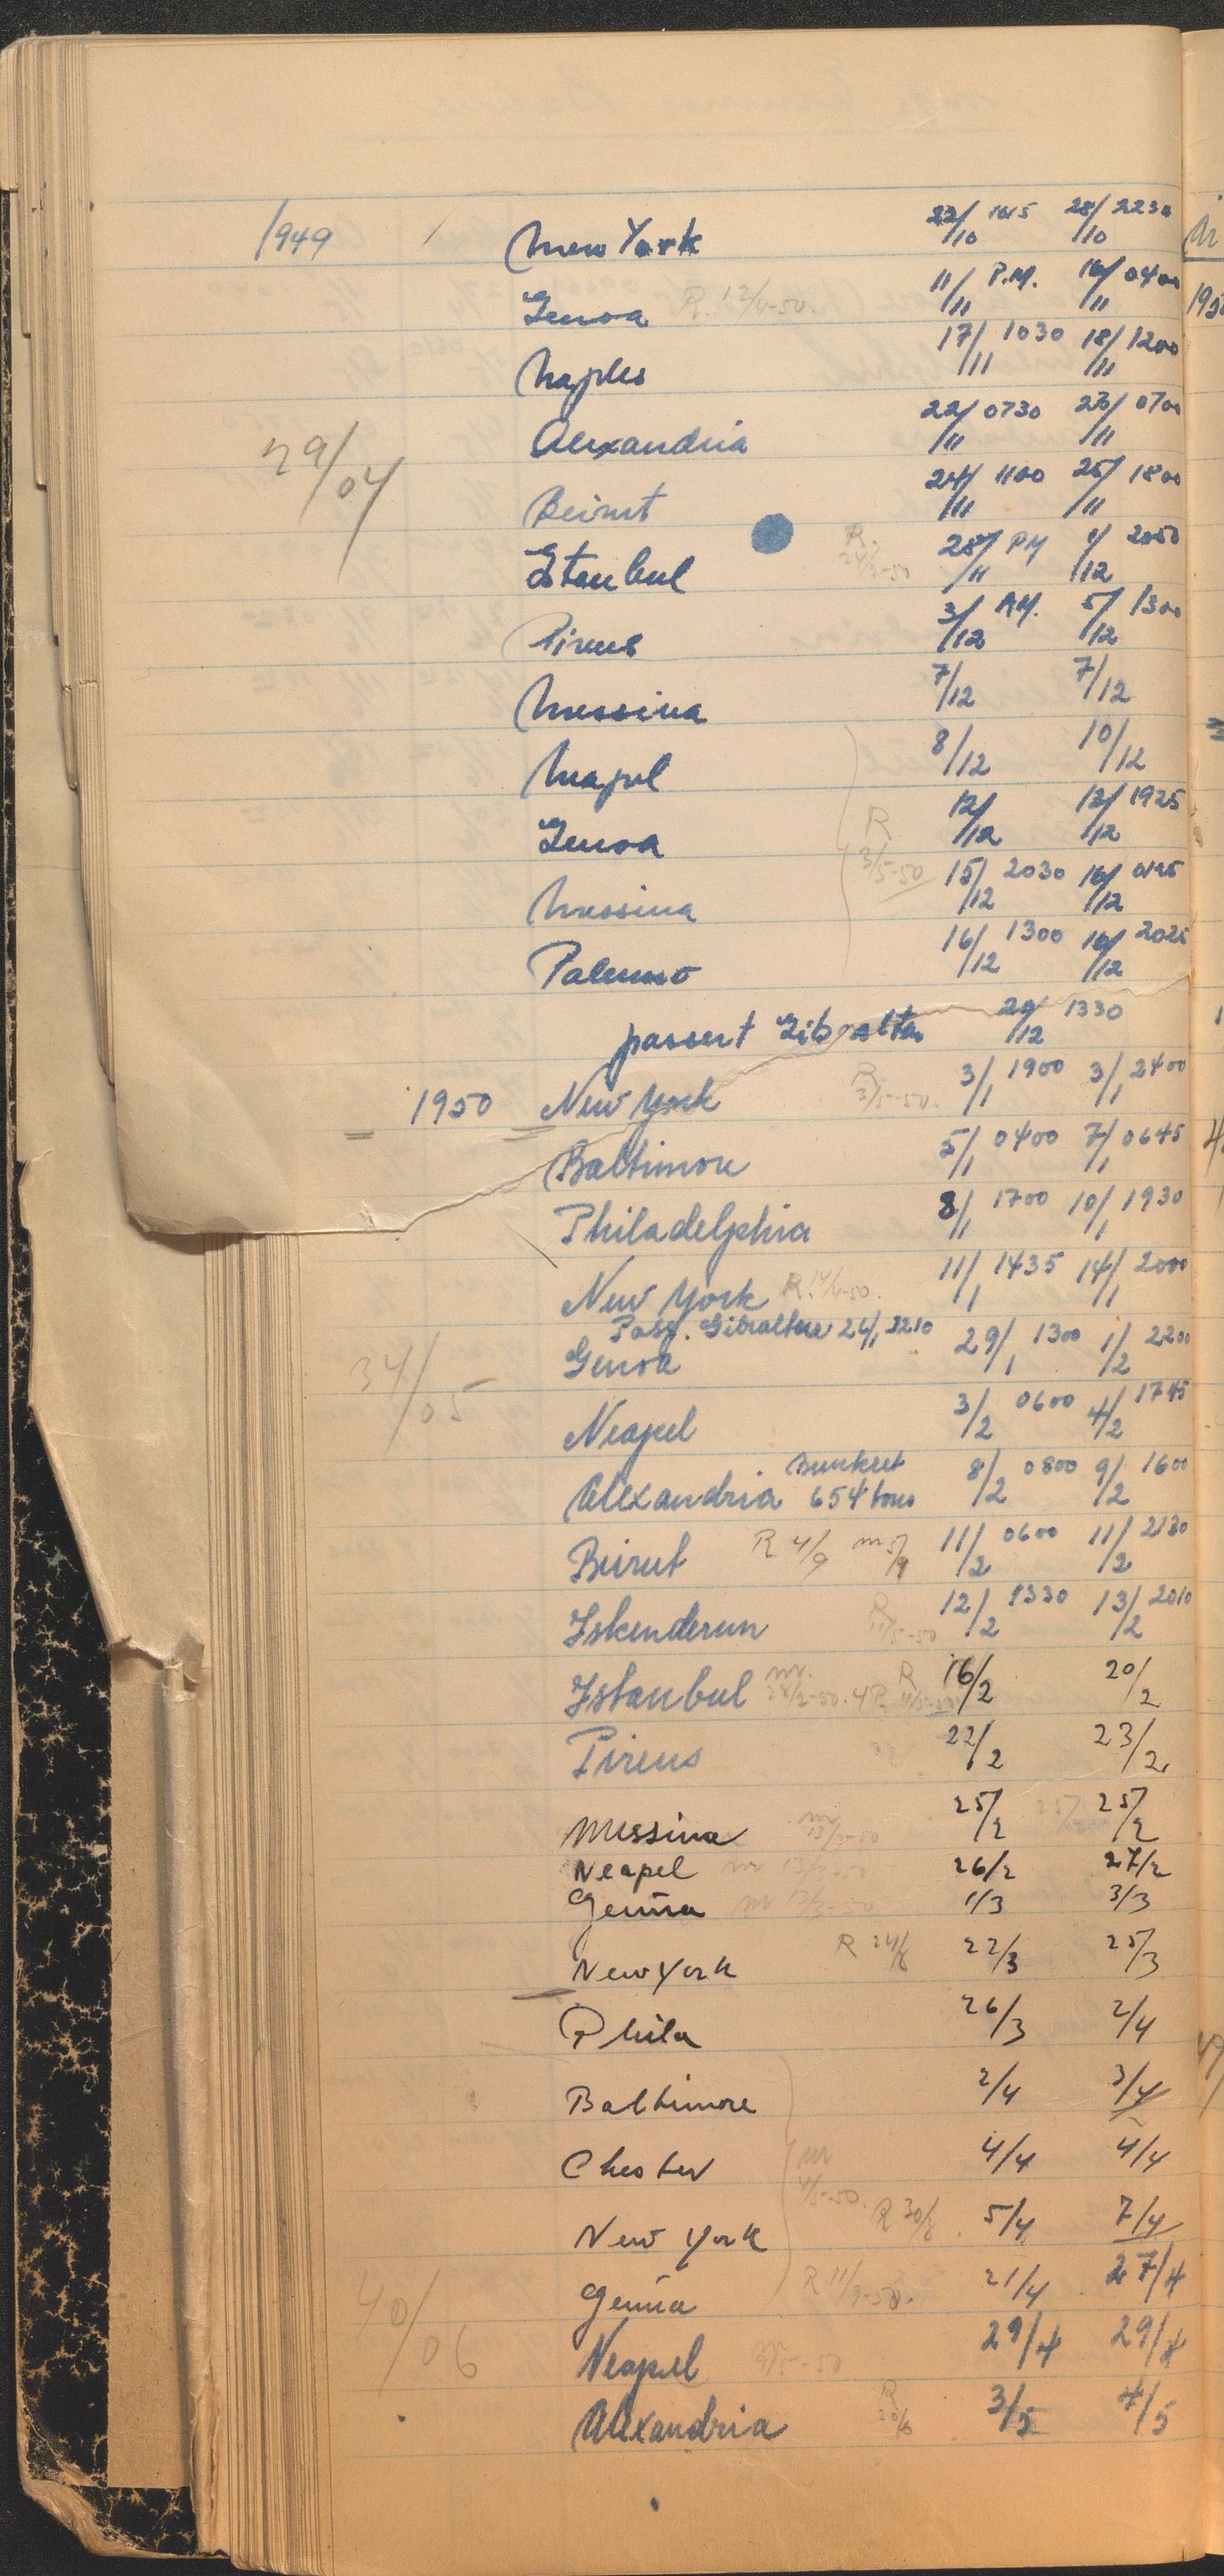 1949 New York 22/10 1615 28/10 2230
Genoa R. 12/4-50. 11/11 P.M. 16/11 0400
Naples 17/11 1030 18/11 1200
29/04 Alexandria 22/11 0730 23/11 0700
Beirut 24/11 1100 25/11 1800
Istanbul R. 28/11 PM 1/12 2050
Pireus 3/12 AM. 5/12 1300
Messina 7/12 7/12
Neapel 8/12 10/12
Genoa R 3/5-50 12/12 13/12 1925
Messina 15/12 2030 16/12
Palermo 16/12 1300 16/12
passert Gibraltar 1330
1950 New York R 3/5-50. 3/1 1900 3/1 2400
Baltimore 5/1 0400 7/1 0645
Philadelphia 8/1 1700 10/1 1930
New York R. 11/1 1435 14/1 2000
Pass. Gibraltar 26/1 2210
34/05 Genoa 29/1 1300 1/2 2200
Neapel 3/2 0600 4/2 1745
Alexandria bunkret 654 tons 8/2 0800 9/2 1600
Beirut R 4/9 11/2 0600 11/2 2130
Iskenderun R 12/2 1330 13/2 2010
Istanbul R 16/2 20/2
Pireus 22/2 23/2
Messina 25/2 25/2
Neapel 26/2 27/2
Genua 1/3 3/3
New York R 22/3 25/3
Phila 26/3 2/4
Baltimore 2/4 3/4
Chester 4/4 4/4
New York R 5/4 7/4
Genua R 11/9-50. 21/4 27/4
40/06 Neapel 29/4 29/4
Alexandria R 3/5 4/5